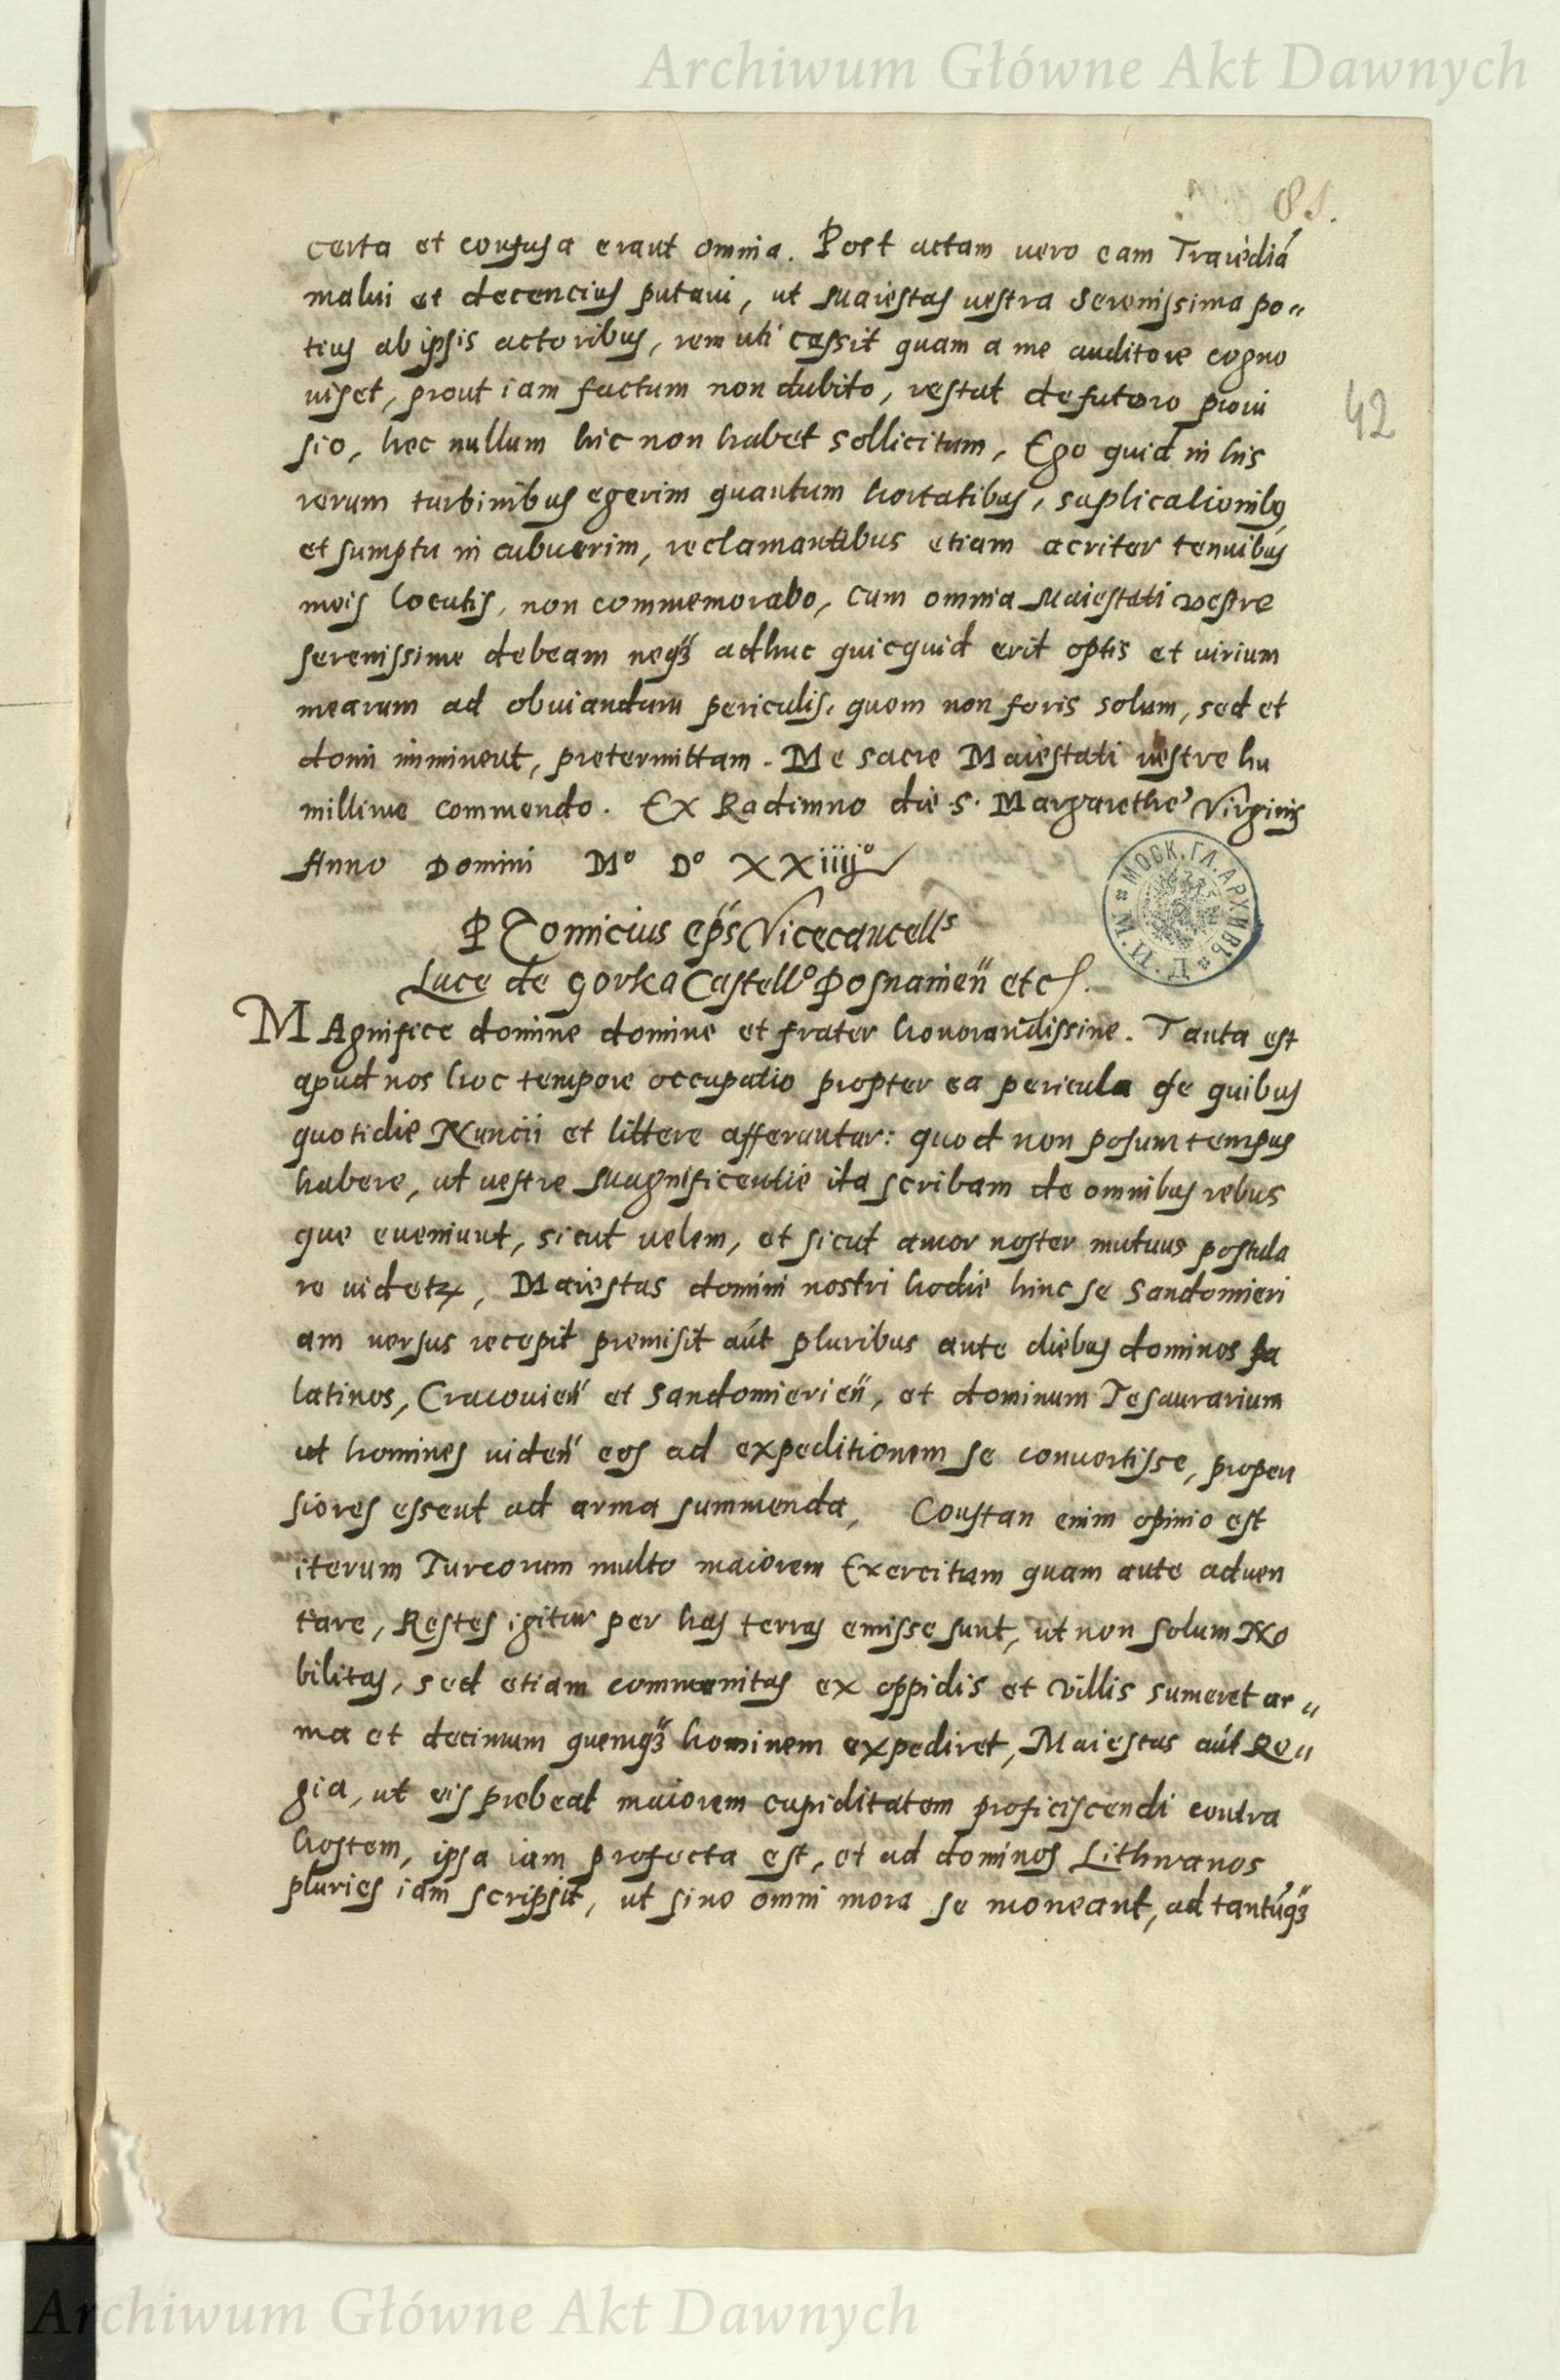 Archiwum Główne Akt Dawnych
81.
certa et confusa erant omnia. Post actam vero eam Traiediā
malui et decencius putaui, ut Maiestas uestra Serenissima po„
tius ab ipsis actoribus, rem uti cessit quam a me auditore cogno
uiset, prout iam factum non dubito, restat de futoro proui
sio, hec nullum hic non habet sollicitum, Ego quid in his
rerum turbinibus egerim quantum hortatibus, suplicationibꝫ
et sumptu in cubuerim, reclamantibus etiam acriter tenuibus
meis locutis, non commemorabo, cum omnia Maiestati vestre
serenissime debeam neqꝫ adhuc quicquid erit optis et virium
mearum ad obuiandum periculis, quem non foris solum, sed et
domi imminent, pretermittam. Me sacre Maiestati uestre hu
millime commendo. Ex Radimno die S. Margarethe Virginis
Anno Domini Mº Dº XXiiijº
P Tomicius ep̄s Vicecancells
Luce de gorka Castellº Posnanień etc.
MAgnifice domine domine et frater honorandissine. Tanta est
apud nos hoc tempore occupatio propter ea pericula de quibus
quotidie Nuncii et littere afferuntur: quod non posum tempus
habere, ut uestre Magnificentie ita scribam de omnibus rebus
que eueniunt, sicut uelem, et sicut amor noster mutuus postula
re uidetꝝ, Maiestas domini nostri hodie hinc se Sandomieri
am uersus recepit premisit aūt pluribus ante diebus dominos pa
latinos, Cracouień et Sandomierień, et dominum Tesaurarium
ut homines uideń eos ad expeditionem se conuertisse, propen
siores essent ad arma summenda, Constan enim opinio est
iterum Turcorum multo maiorem Exercitum quam ante aduen
tare, Restes igitur per has terras emisse sunt, ut non solum No
bilitas, sed etiam communitas ex oppidis et villis sumeret ar„
ma et decimum quemqꝫ hominem expediret, Maiestas aūt Re„
gia, ut eis prebeat maiorem cupiditatem proficiscendi contra
hostem, ipsa iam profecta est, et ad dominos Lithwanos
pluries iam scripsit, ut sine omni mora se moneant, ad tantūqꝫ
42
МОСК. ГЛ. АРХИВЪ
М. И. Д.
Archiwum Główne Akt Dawnych